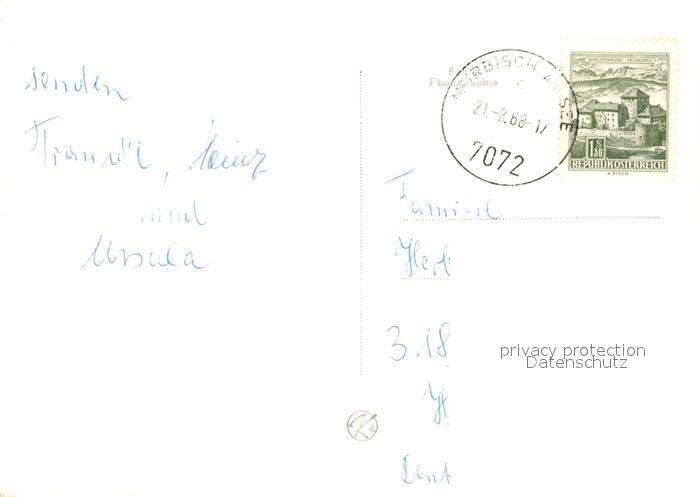 senden
Heinz
und
Ursula
MÖRBISCH AM SEE
21.-9.68-17
7072
SCHATTENBURG - FELDKIRCH
1.S 50
REPUBLIK ÖSTERREICH
A. PILCH
Photographie
Familie
3.18
privacy protection
Datenschutz